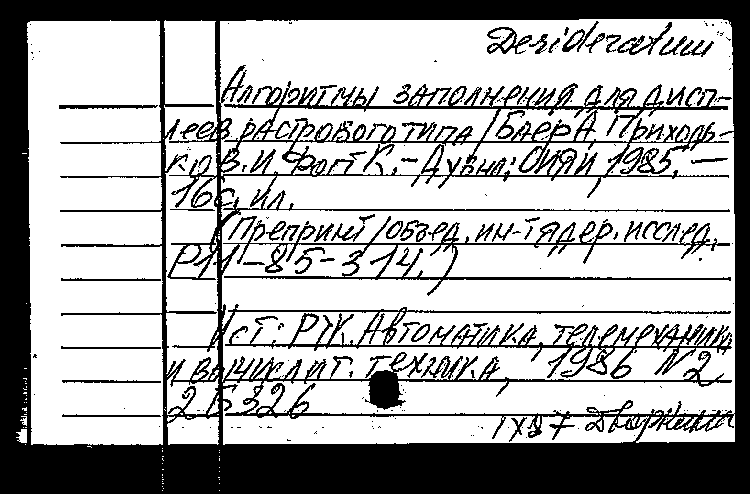 Desideratum
Алгоритмы заполнения для дисп-
леев растрового типа / Баер А. Приходь-
ко В.И. Фогт К. – Дубна: ОИЯИ, 1985. –
16с. ил.
(Препринт / объед. ин-т ядер. исслед.
Р11-85-314.)
Ист: РЖ. Автоматика, телемеханика
и вычислит. техника, 1986 N2
2Б326
IX87 Дворкина